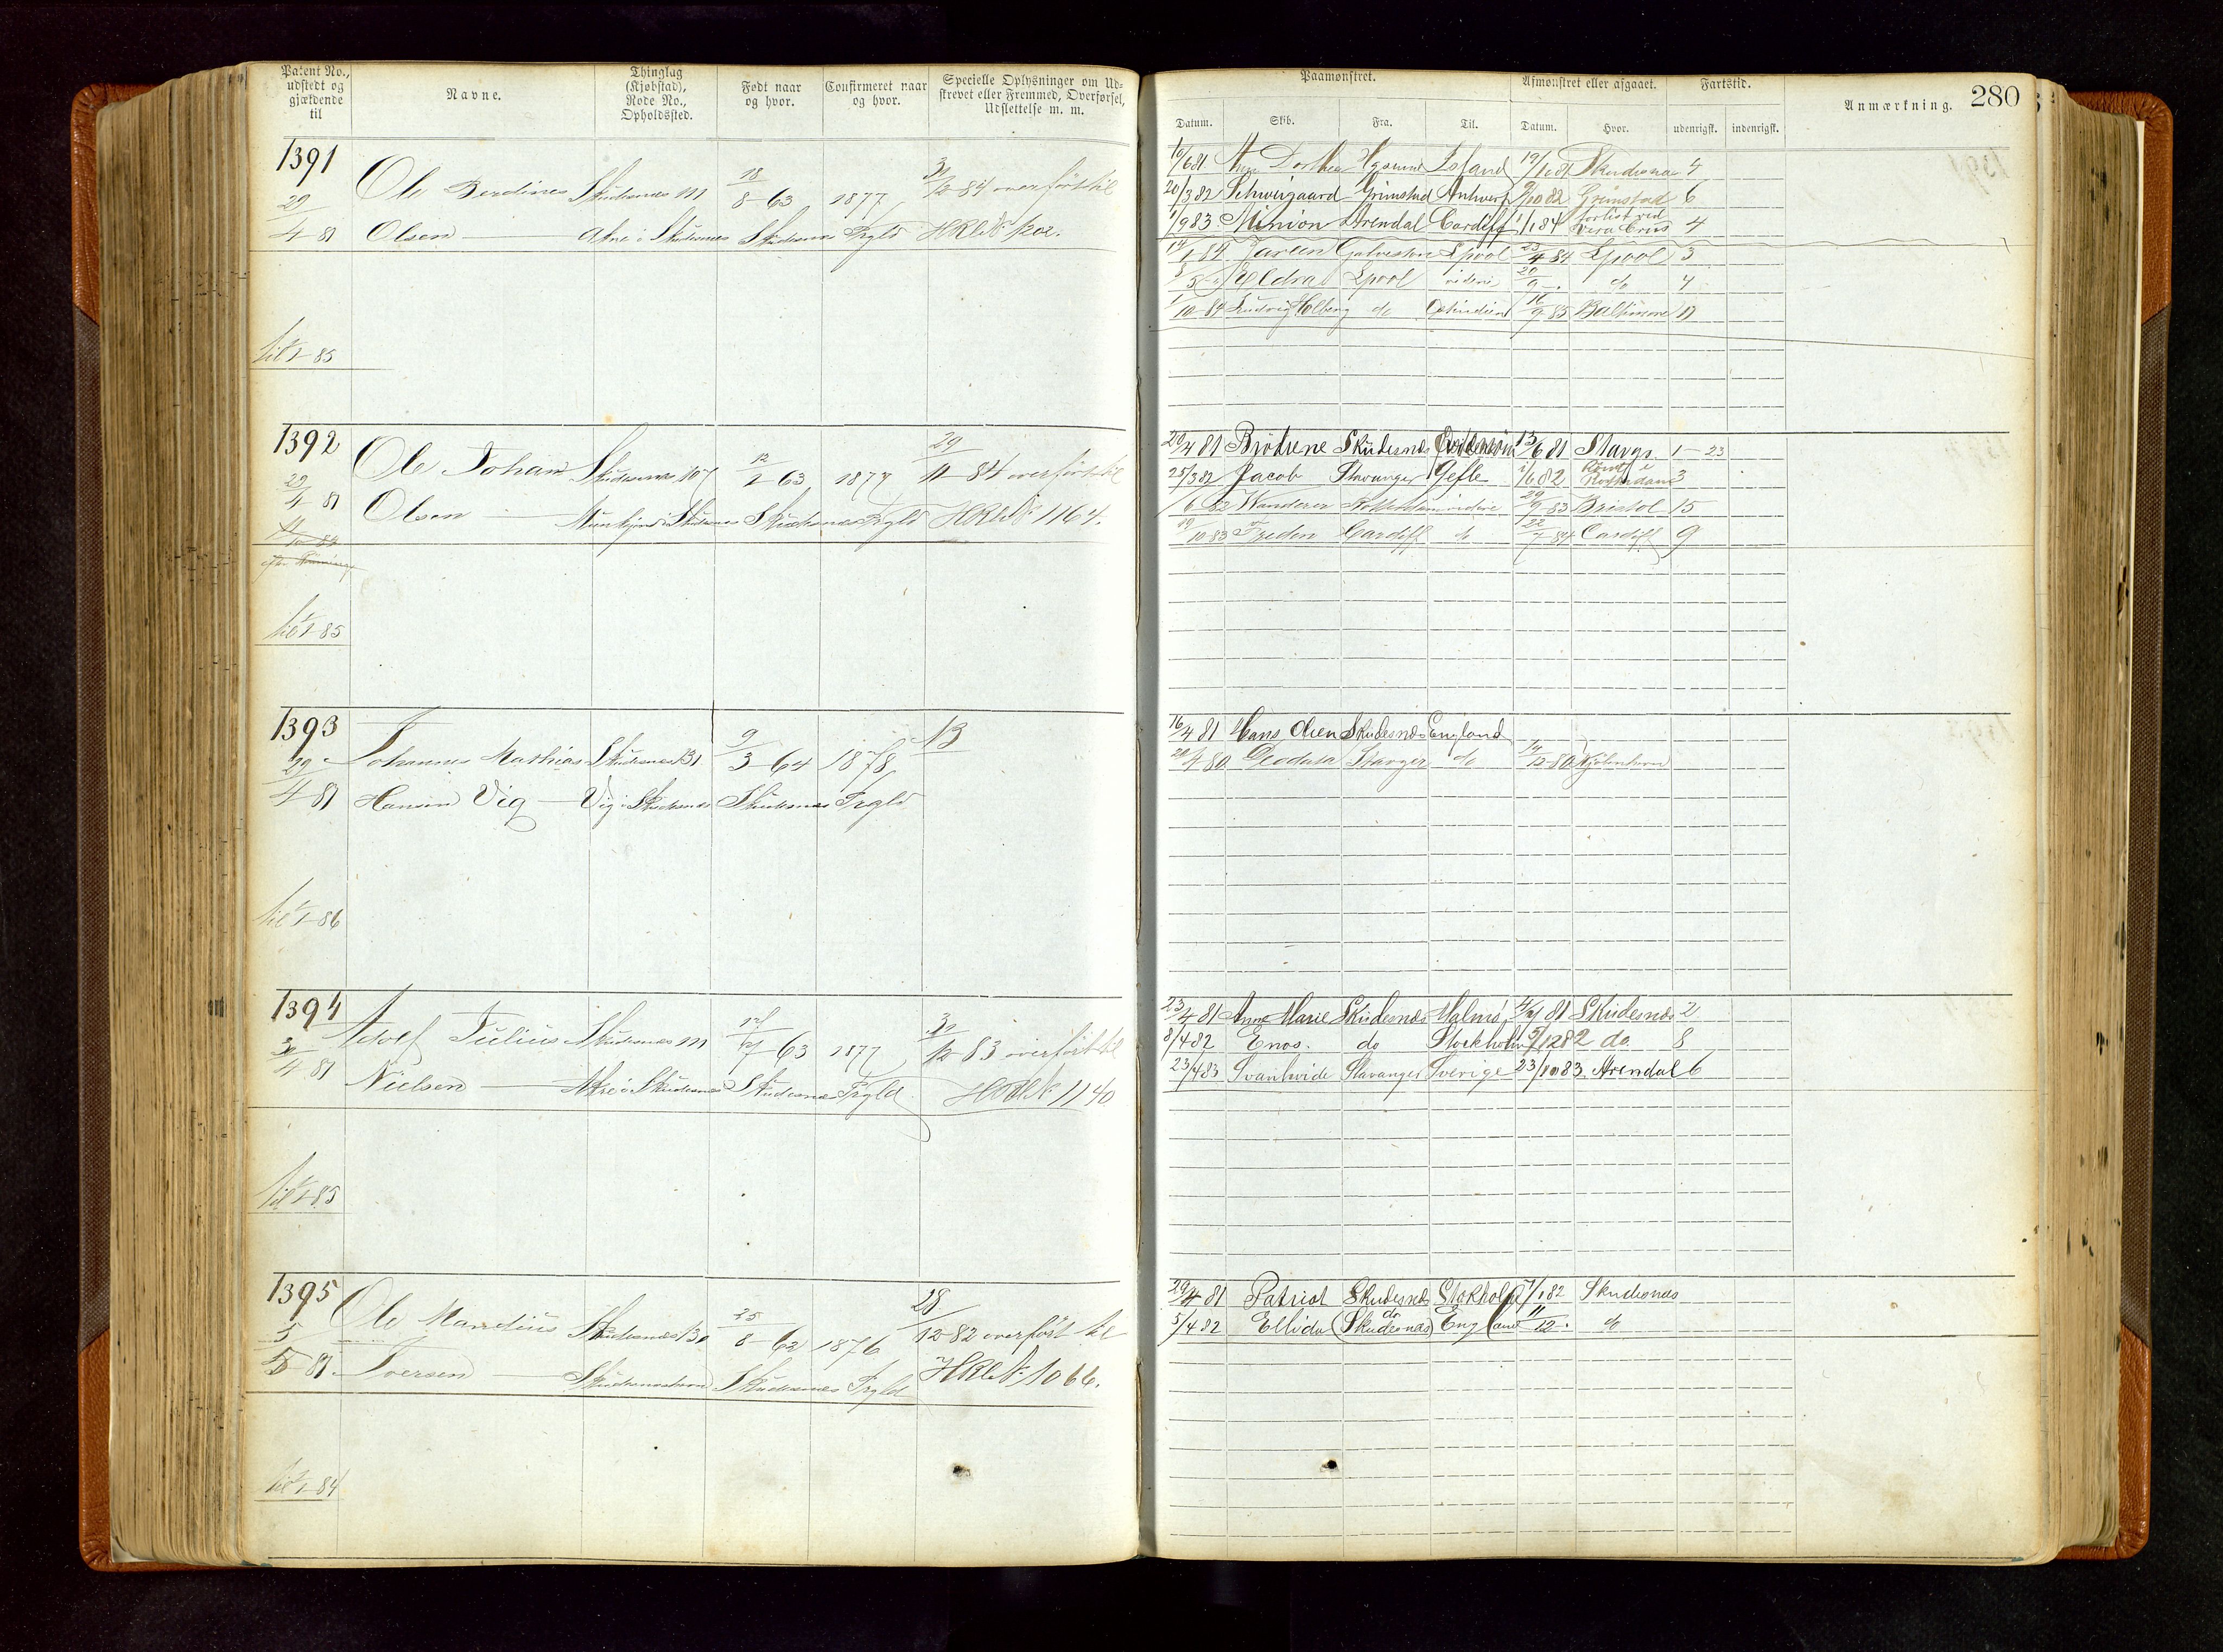 Patent No.,
udstedt og
gjældende
til
Navne.
Thinglag
(Kjøbstad),
Rode No.,
Opholdssted.
Født naar
og hvor.
Confirmeret naar
og hvor.
Specielle Oplysninger om Ud-
skrevet eller Fremmed, Overførsel,
Udslettelse m. m.
1391
29/4 81
Ole Berdines
Olsen
Skudesnæs 111
Akre i Skudesnæs
18/8-63
Skudesnæs
1877
Prgld
31/12-84 overført til
HRl N
til 1/1-85
1392
29/4 81
Ole Johan
Olsen
Skudesnæs 107
Skudesnæs
12/2-63
Skudesnæs
1877
Prgld
29/11-84 overført til
HRl N: 1164.
til 1/1-85
1393
29/4 81
Johannes Mathias
Hansen Vig
Skudesnæs 131
Vig i Skudesnæs
9/3-64
Skudesnæs
1878
Prgld
13
til 1/1-86
1394
30/4 81
Adolf Julius
Nielsen
Skudesnæs 111
Akre i Skudesnæs
7-63
Skudesnæs
1877
Prgld.
31/12 83 overført til
N 1140
til 1/1-85
1395
5/5 81
Ole Mandius
Iversen
Skudesnæs 130
Skudesnæshavn
25/8-62
Skudesnæs
1876
Prgld
28/12-82 overført til
HRl N: 1066.
til 1/1-84
280
Paamønstret.
Afmønstret eller afgaaet.
Fartstid.
Anmærkning.
Datum.
Skib.
Fra.
Til.
Datum.
Hvor.
udenrigsk.
indenrigsk.
10/6 81 Dorthea Hgsund Island 19/10 81 Skudesnæs 4
20/3 82 Schweigaard Grimstad Antwerp /10 82 Grimstad 6
1/9 83 Minion Arendal Cardiff 1/1 84 forlist ved Vera Cruz 4
14/1 84 Galveston Lpool 23/4 84 Lpool 3
Eldra Lpool videre 20/9 - do 4
1/10-84 Ludvig Holberg do Ostindien 16/9 85 Baltimore 11
20/4 81 Brödrene Skudesnæs 13/6 81 Stavgr. 1-23
25/3 82 Jacob Stavanger Gefle 1/6 82 Rømt i Rotterdam 3
/6 82 Wanderer Rotterdam videre 29/9-83 Bristol 15
19/10-83 Freden Cardiff do 22/7-84 Cardiff 9
16/4 81 Hans Olsen Skudesnæs England
20/4 80 Deodata Stavger do 14/12-80 Kjøbenhavn
23/4 81 Anne Marie Skudesnæs Malmö 81 Skudesnæs 2
8/4 82 Enos. do Stockholm 5/12 82 do. 8
23/4 83 Svanhvide Stavanger Sverige 23/10 83 Arendal 6
29/4 81 Patriot Skudesnæs Stokholm 7/1 82 Skudesnæs
5/4 82 Ellida (Skudesnæs) do England 11/12. do